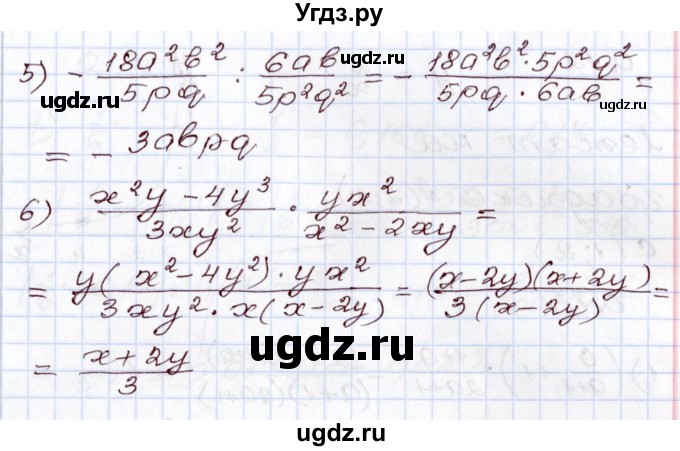 Угдз.ру
5) - 18a²b² / 5pq : 6ab / 5p²q² = - 18a²b² · 5p²q² / 5pq · 6ab =
ugdz.ru ugdz.ru ugdz.ru
= - 3abpq
6) x²y - 4y³ / 3xy² · yx² / x² - 2xy =
= y(x² - 4y²) · yx² / 3xy² · x(x - 2y) = (x-2y)(x+2y) / 3(x-2y) =
ugdz.ru
= x+2y / 3
ugdz.ru ugdz.ru
ugdz.ru